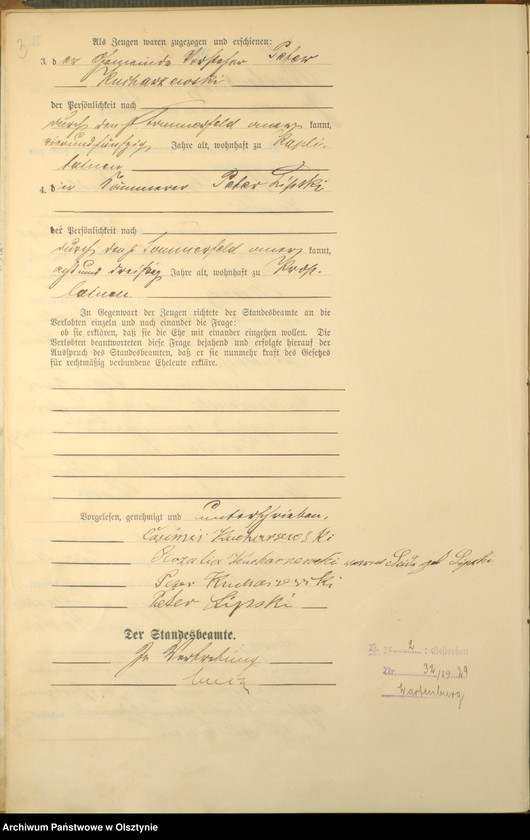 3
Als Zeugen waren zugezogen und erschienen:
3. der Gemeinde Vorsteher Peter
Kucharzewski
der Persönlichkeit nach
durch den Sommerfeld aner kannt,
vierundfünfzig Jahre alt, wohnhaft zu Kapli-
tainen
4. der Kämmerer Peter Lipski
der Persönlichkeit nach
durch den Sommerfeld aner kannt,
achtund dreißig Jahre alt, wohnhaft zu
In Gegenwart der Zeugen richtete der Standesbeamte an die
Verlobten einzeln und nach einander die Frage:
ob sie erklären, daß sie die Ehe mit einander eingehen wollen. Die
Verlobten beantworteten diese Frage bejahend und erfolgte hierauf der
Ausspruch des Standesbeamten, daß er sie nunmehr kraft des Gesetzes
für rechtmäßig verbundene Eheleute erkläre.
Vorgelesen, genehmigt und unterschrieben.
Casimir Kucharzewski
Rozalia Kucharzewski geb Lipski
Peter Kucharzewski
Peter Lipski
Der Standesbeamte.
In Vertretung
Zu 2 : Gestorben
Nr. 32/1929
Wartenburg
Archiwum Państwowe w Olsztynie